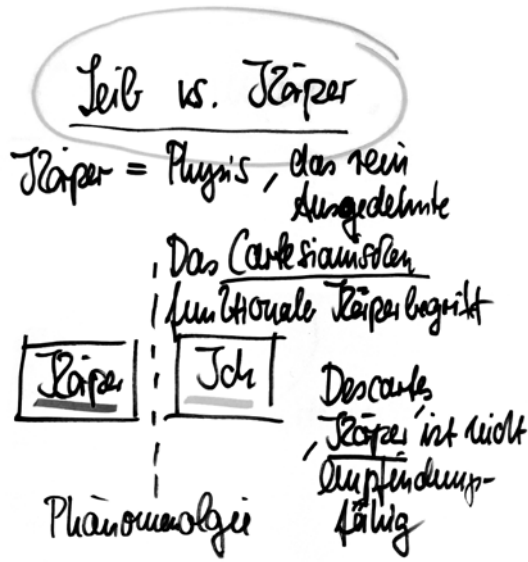 Leib vs. Körper
Körper = Physis, das rein
Ausgedehnte
Das Cartesianischen
funktionale Körperbegriff
Körper
Ich
Descartes,
Körper ist nicht
empfindungs-
fähig
Phänomenolgie